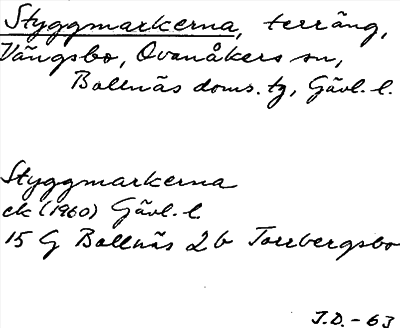 Styggmarkerna, terräng,
Vängsbo, Ovanåkers sn,
Bollnäs doms. tg, Gävl. l.
Styggmarkerna
ek (1960) Gävl. l
15 G Bollnäs 2b Torrbergsbo
J.D. - 63